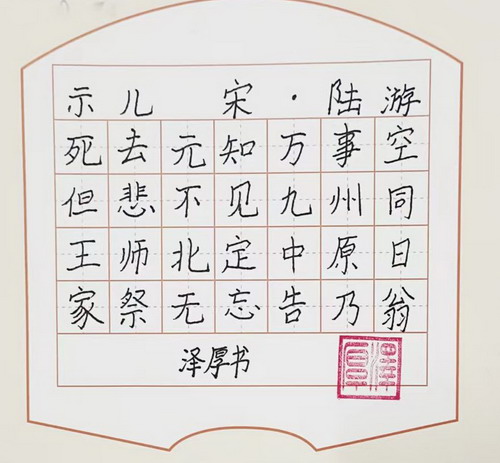 示儿 宋·陆游
死去元知万事空
但悲不见九州同
王师北定中原日
家祭无忘告乃翁
泽厚书